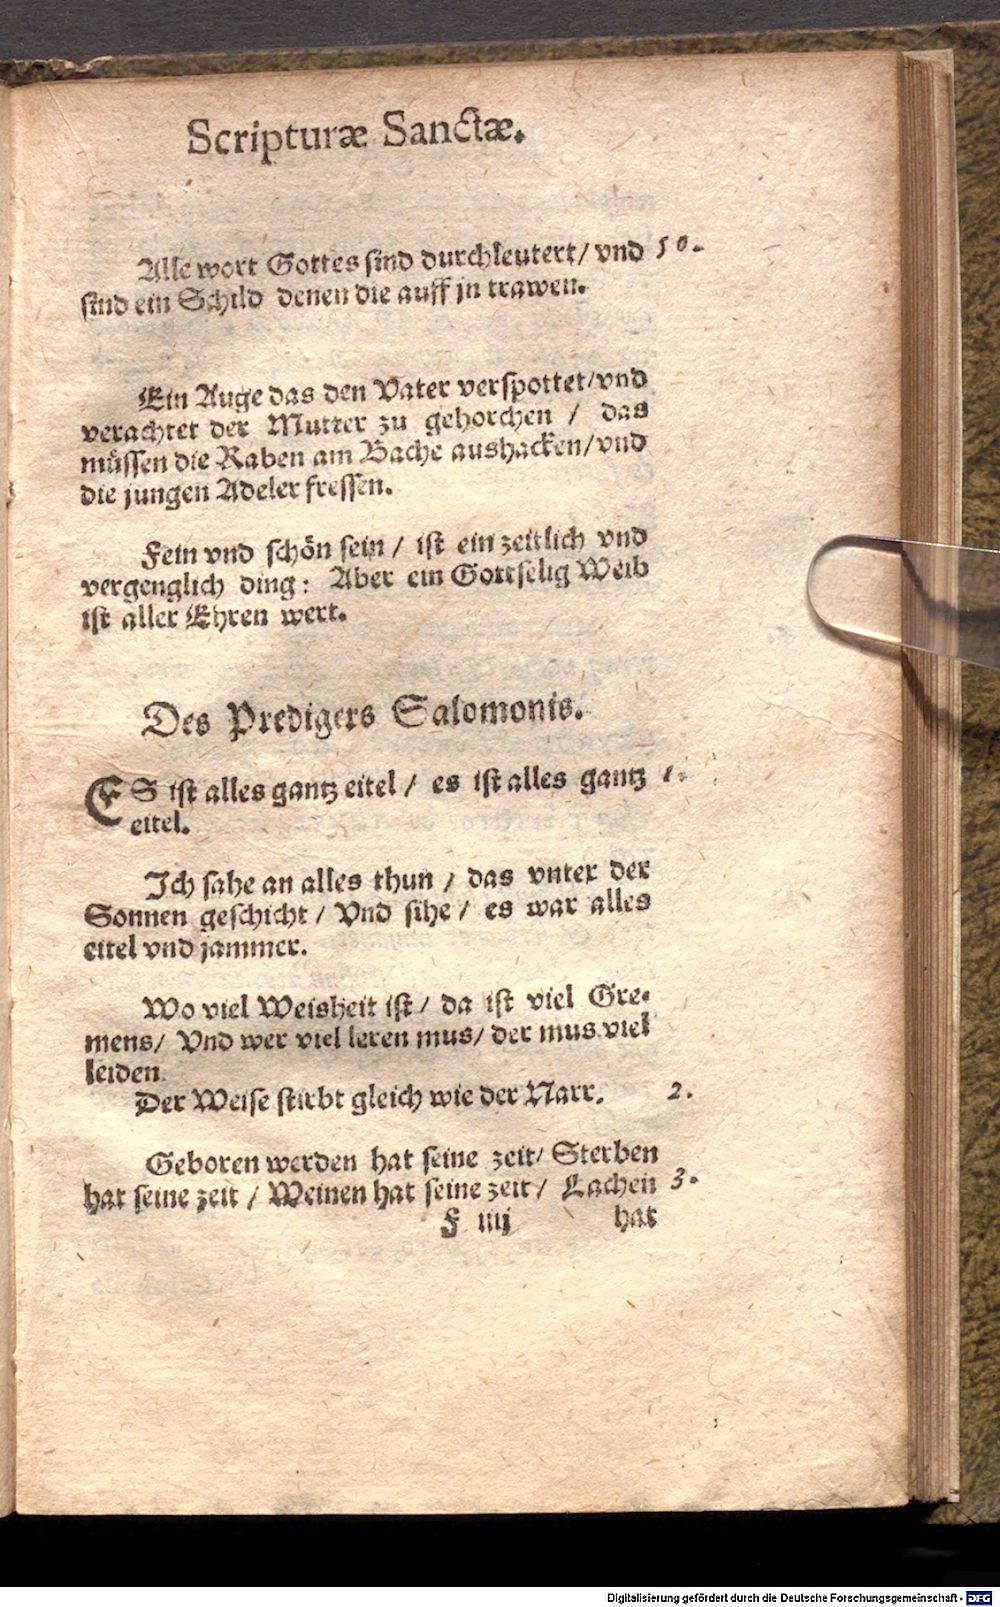 Scripturæ Sanctæ.
Alle wort Gottes sind durchleutert/ vnd 50.
sind ein Schild denen die auff jn trawen.
Ein Auge das den Vater verspottet/vnd
verachtet der Mutter zu gehorchen / das
müssen die Raben am Bache aushacken/vnd
die jungen Adeler fressen.
Fein vnd schön sein / ist ein zeitlich vnd
vergenglich ding: Aber ein Gottselig Weib
ist aller Ehren wert.
Des Predigers Salomonis.
ES ist alles gantz eitel / es ist alles gantz 1.
eitel.
Ich sahe an alles thun / das vnter der
Sonnen geschicht / Vnd sihe / es war alles
eitel vnd jammer.
Wo viel Weisheit ist / da ist viel Gre-
mens/ Vnd wer viel leren mus/ der mus viel
leiden.
Der Weise stirbt gleich wie der Narr. 2.
Geboren werden hat seine zeit/ Sterben
hat seine zeit / Weinen hat seine zeit / Lachen 3.
F iiij hat
Digitalisierung gefördert durch die Deutsche Forschungsgemeinschaft - DFG